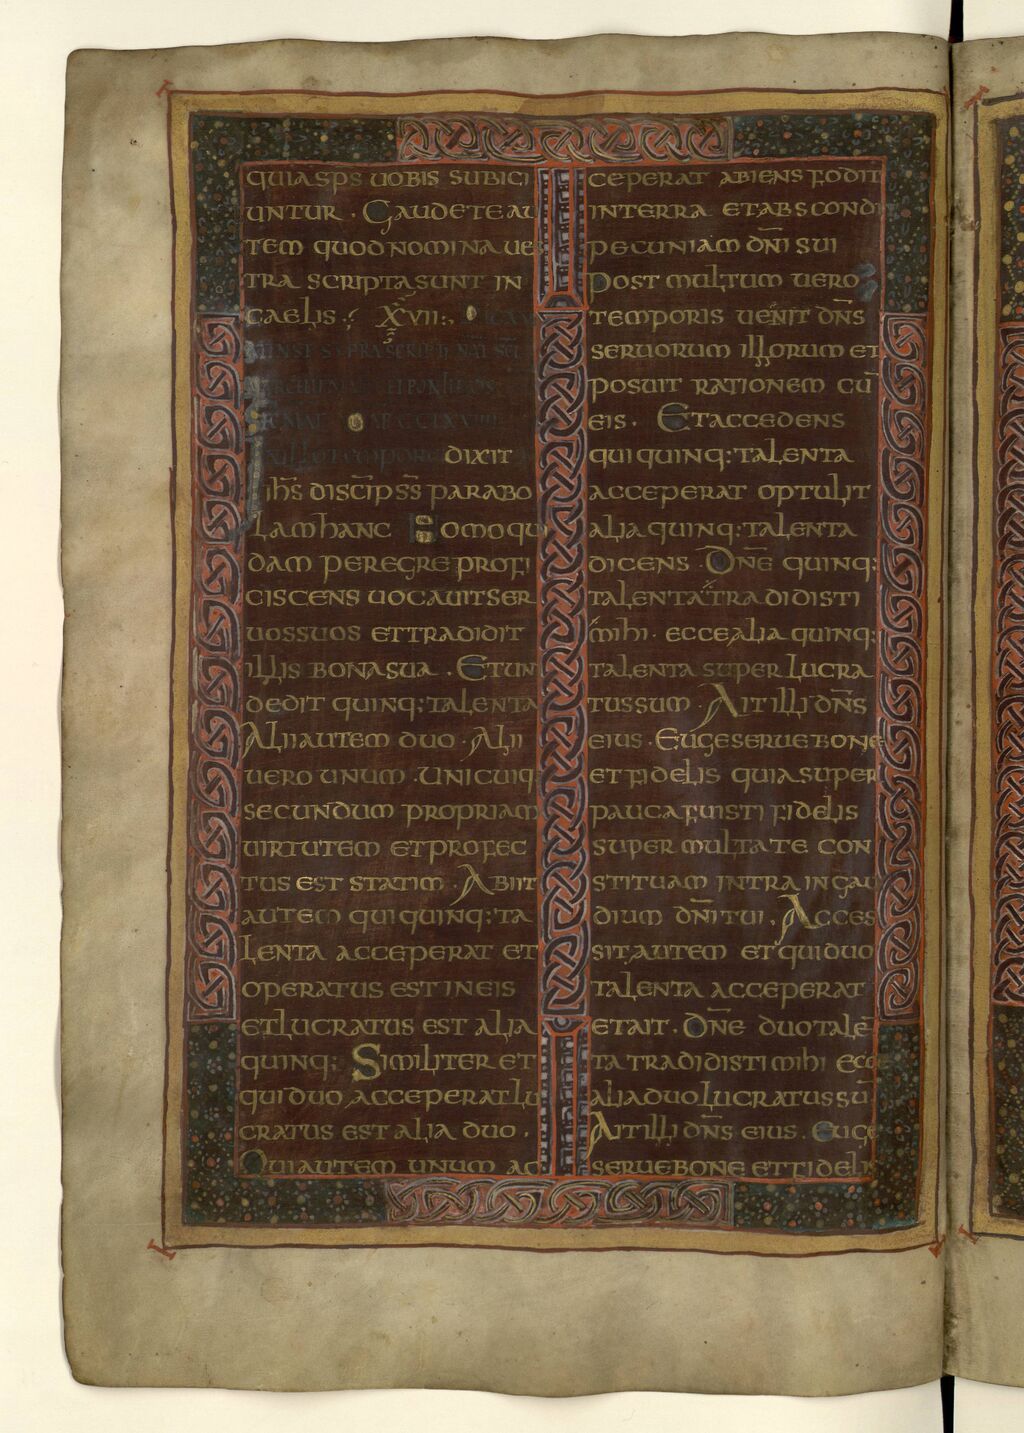 QUIA SPS UOBIS SUBICI
UNTUR . GAUDETE AU
TEM QUOD NOMINA UES
TRA SCRIPTA SUNT IN
CAELIS : XVII :
DIXIT
IHS DISCIPSS PARABO
LAM HANC HOMO QUI
DAM PEREGRE PROFI
CISCENS UOCAUIT SER
UOS SUOS ET TRADIDIT
ILLIS BONA SUA . ET UNI
DEDIT QUINQ; TALENTA
ALII AUTEM DUO . ALII
UERO UNUM . UNICUIQ;
SECUNDUM PROPRIAM
UIRTUTEM ET PROFEC
TUS EST STATIM . ABIIT
AUTEM QUI QUINQ; TA
LENTA ACCEPERAT ET
OPERATUS EST IN EIS
ET LUCRATUS EST ALIA
QUINQ; SIMILITER ET
QUI DUO ACCEPERAT LU
CRATUS EST ALIA DUO .
QUI AUTEM UNUM AC
CEPERAT ABIENS FODIT
IN TERRA ET ABSCONDIT
PECUNIAM DNI SUI
POST MULTUM UERO
TEMPORIS UENIT DNS
SERUORUM ILLORUM ET
POSUIT RATIONEM CŪ
EIS . ET ACCEDENS
QUI QUINQ; TALENTA
ACCEPERAT OPTULIT
ALIA QUINQ; TALENTA
DICENS DNE QUINQ;
TALENTA TRADIDISTI
MIHI . ECCE ALIA QUINQ;
TALENTA SUPER LUCRA
TUS SUM . AIT ILLI DNS
EIUS . EUGE SERUE BONE
ET FIDELIS QUIA SUPER
PAUCA FUISTI FIDELIS
SUPER MULTA TE CON
STITUAM INTRA IN GAU
DIUM DNI TUI . ACCES
SIT AUTEM ET QUI DUO
TALENTA ACCEPERAT
ET AIT . DNE DUO TALĒ
TA TRADIDISTI MIHI ECCE
ALIA DUO LUCRATUS SŪ
AIT ILLI DNS EIUS . EUGE
SERUE BONE ET FIDELIS